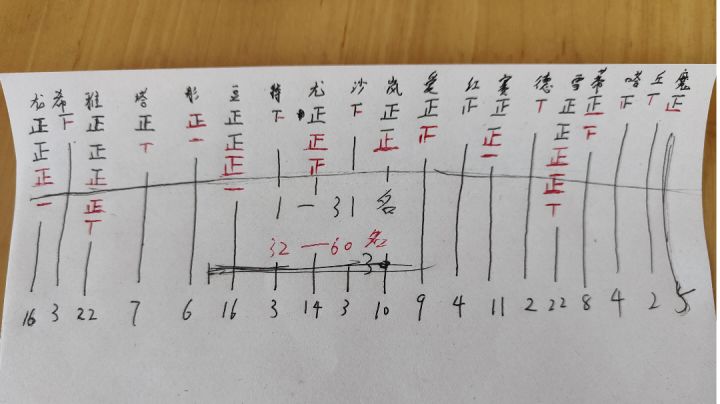 龙 希 雅 塔 彤 豆 特 尤 沙 岚 爱 红 赛 德 雪 蒂 塔 丘 魔
正 下 正 正 正 正 下 正 下 正 正 正 正 T 正 正 正 T 正
正 正 T 一 正 正 正 正 一 正 下
正 正 正 正 正
一 正 一 正
T T
1 — 31 名
32 — 60 名
3
16 3 22 7 6 16 3 14 3 10 9 4 11 2 22 8 4 2 5